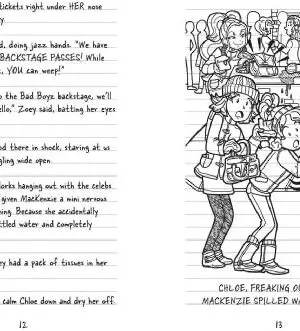 tickets right under HER nose
y.
d, doing jazz hands. "We have
BACKSTAGE PASSES! While
, YOU can weep!"
o the Bad Boyz backstage, we'll
ello," Zoey said, batting her eyes
od there in shock, staring at us
gling wide open.
dorks hanging out with the celebs
given MacKenzie a mini nervous
ning. Because she accidentally
ttled water and completely
ey had a pack of tissues in her
calm Chloe down and dry her off.
12
CHLOE, FREAKING OU
MACKENZIE SPILLED WA
13